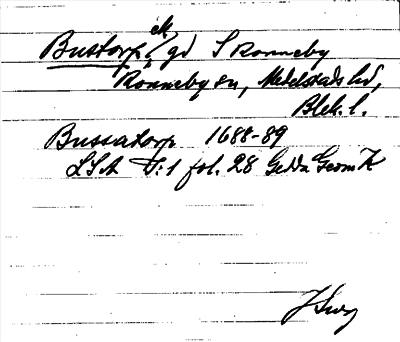 ek.
Bustorp, gd S Ronneby
Ronneby sn, Medelstads hd,
Blek. l.
Bussatorp 1688-89
LSA T:1 fol. 28 Gedda Geom K